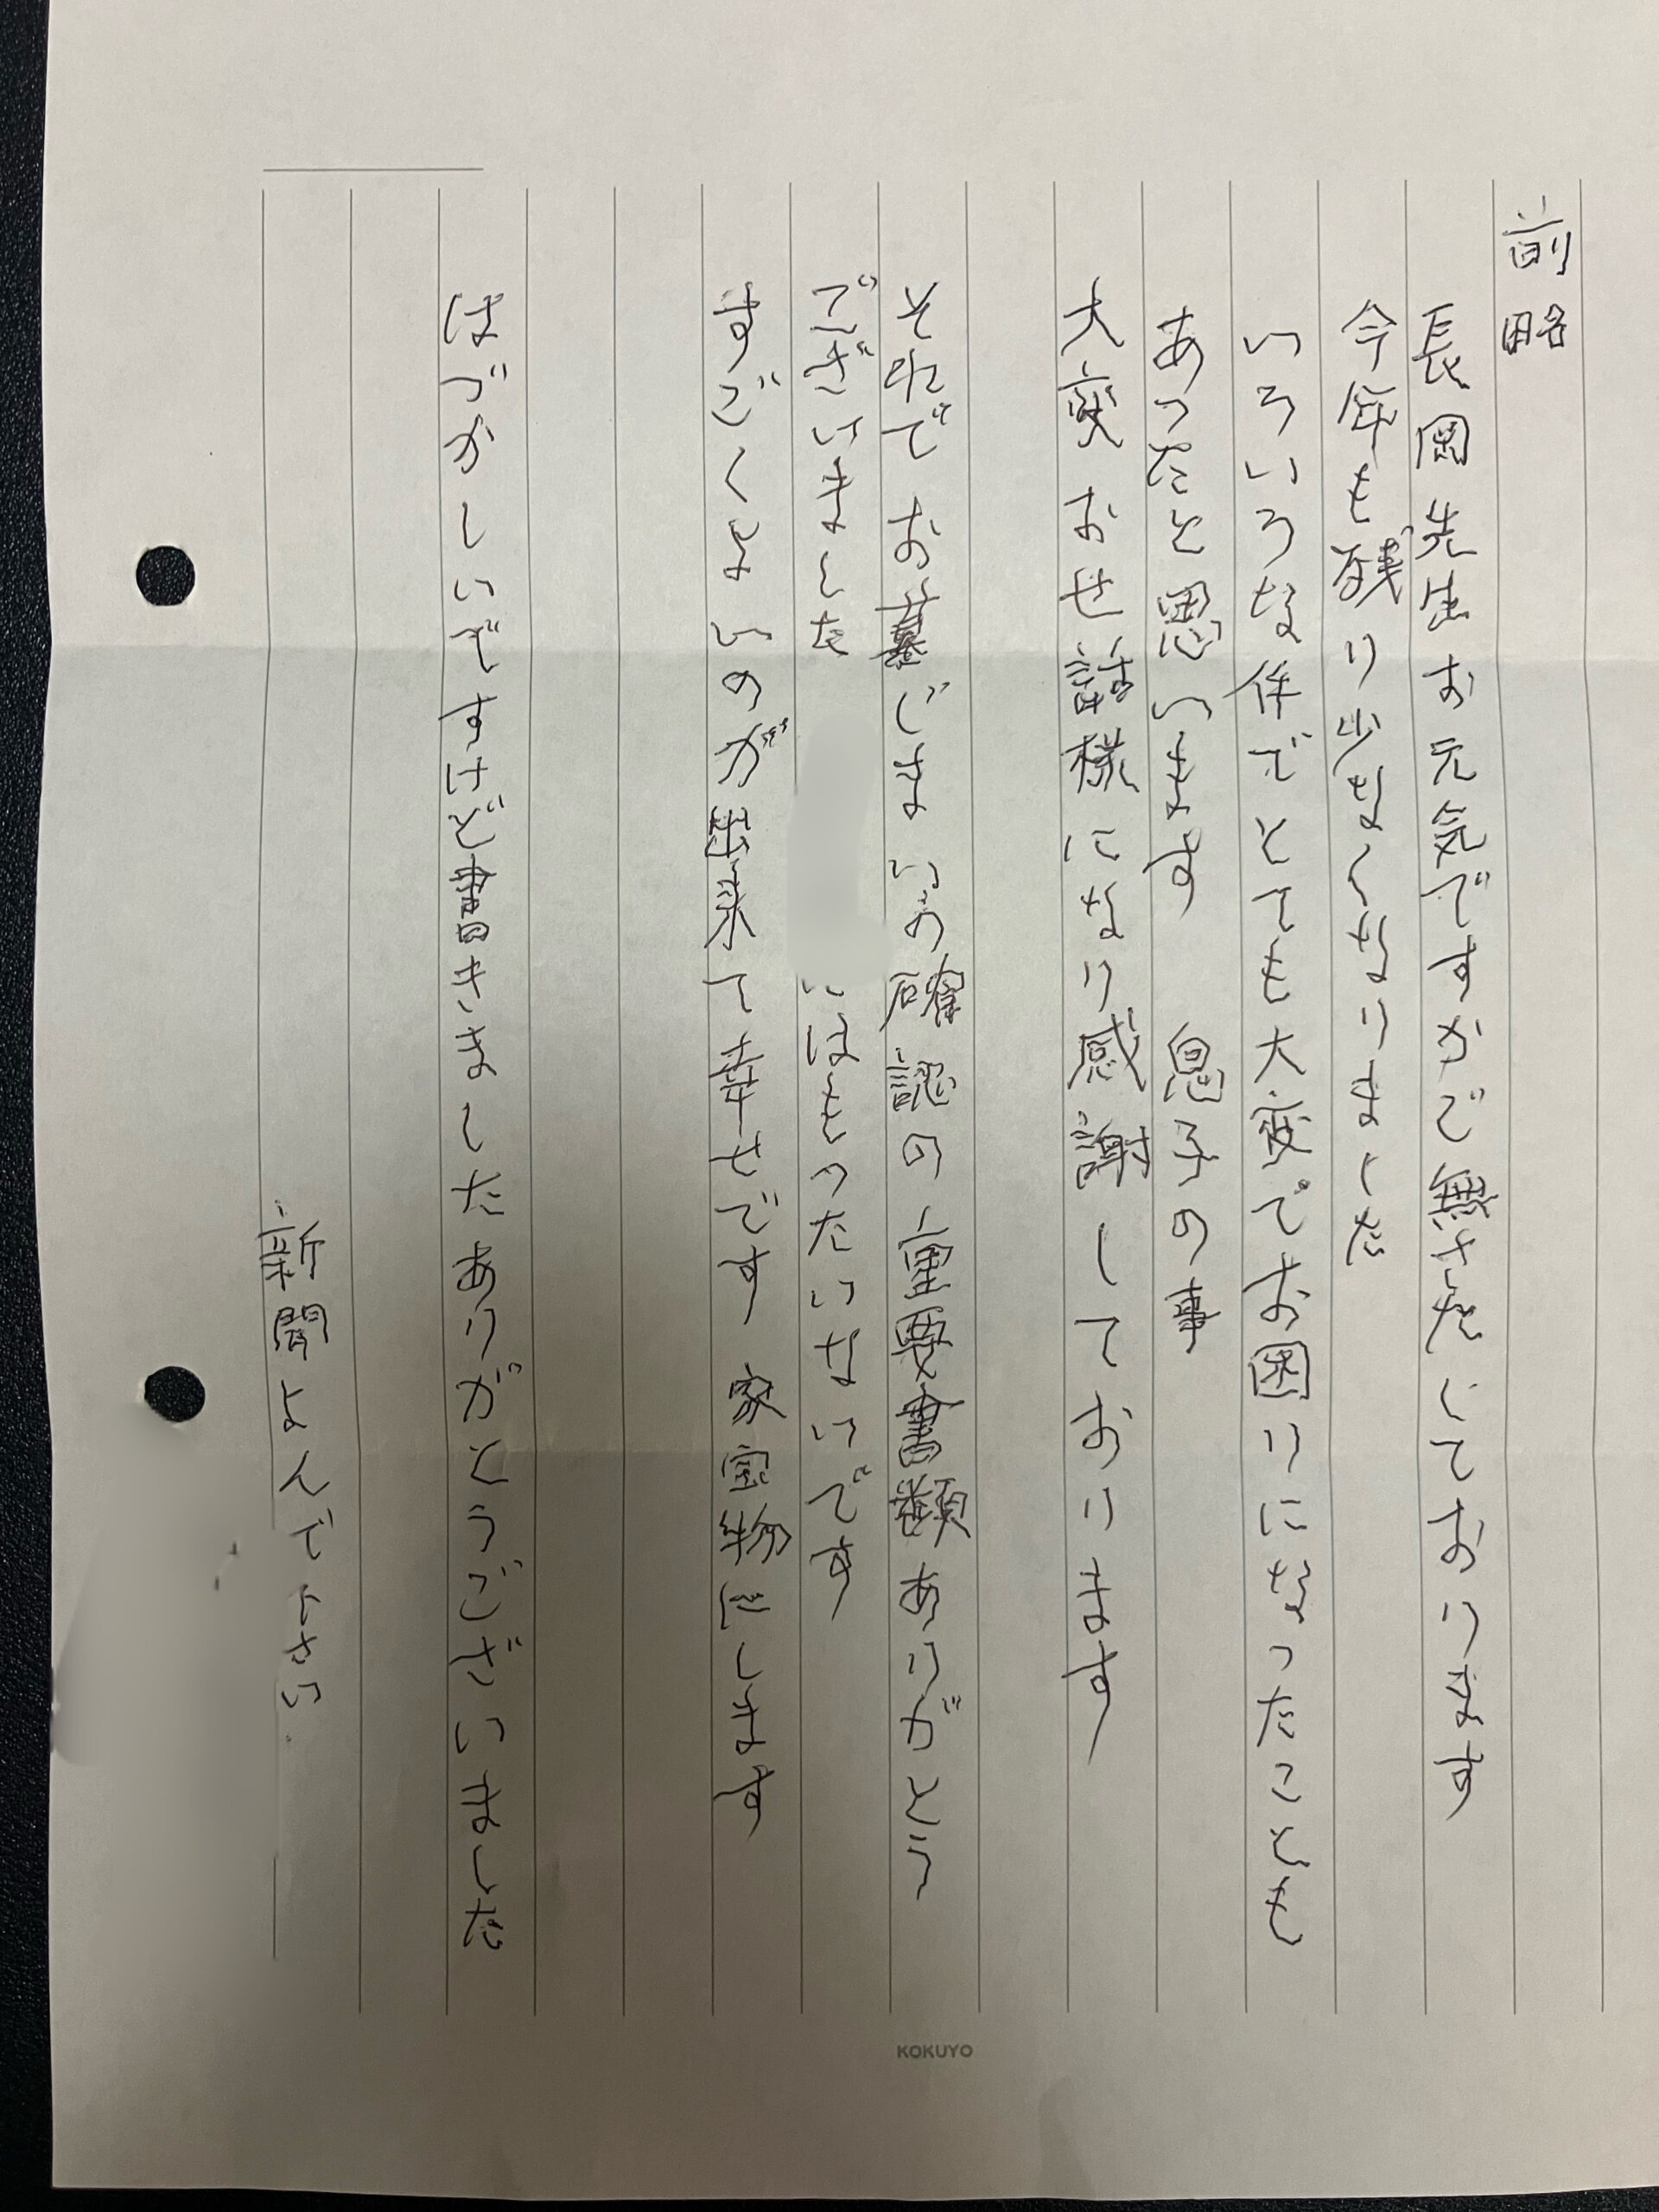 前略
長岡先生お元気ですかご無さたしております
今年も残り少なくなりました
いろいろな件でとても大変でお困りになったことも
あったと思います 息子の事
大変お世話様になり感謝しております
それでお墓じまいの確認の重要書類ありがとう
ございました
にはもったいないです
すごくよいのが出来て幸せです 家宝物にします
はづかしいですけど書きました ありがとうございました
新聞よんで下さい
KOKUYO